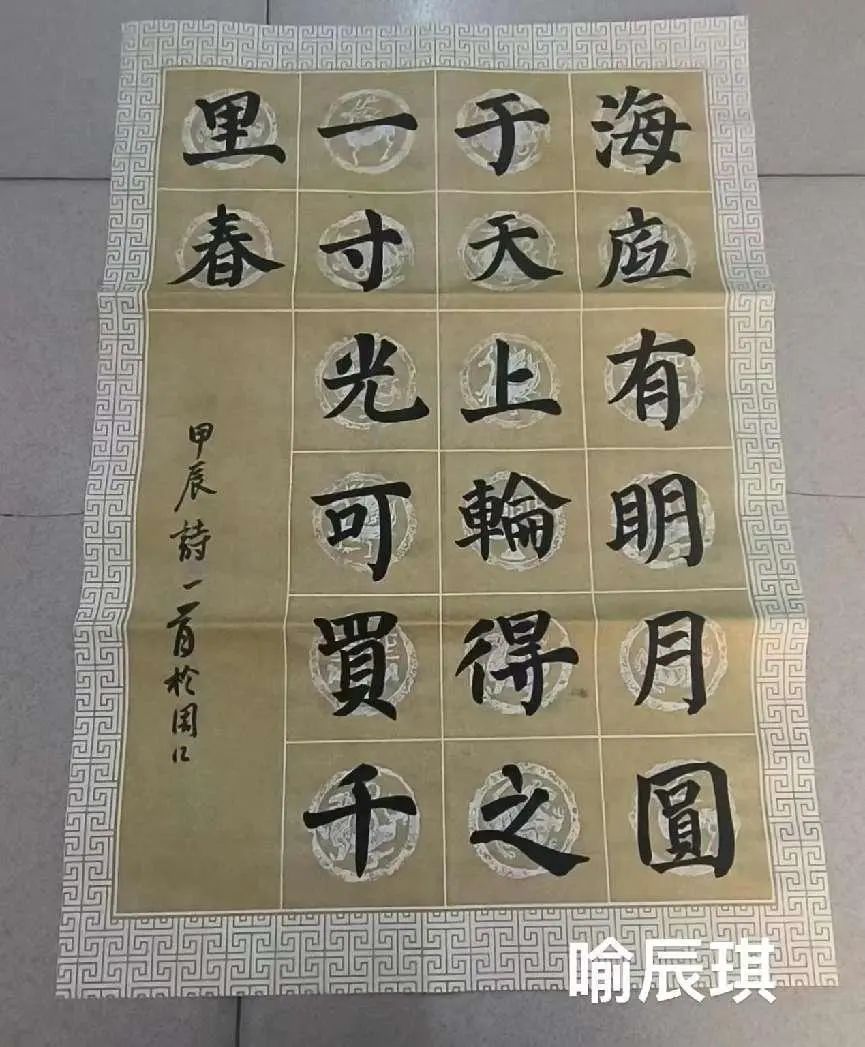 海应有明月圓
于天上輪得之
一寸光可買千
里春
甲辰詩一首於周口
喻辰琪